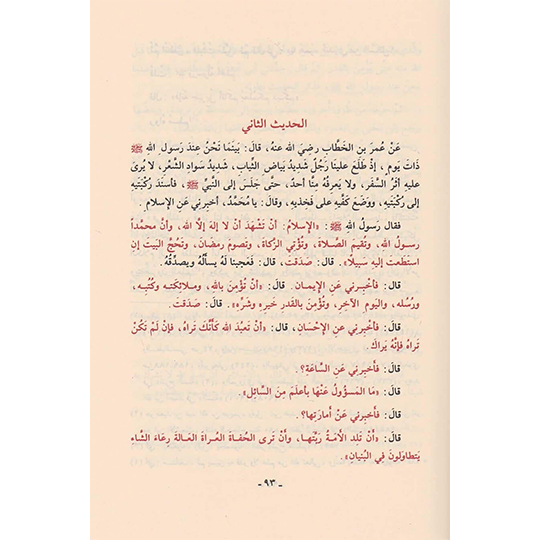 الحديث الثاني
عَنْ عُمَرَ بنِ الخَطَّابِ رضِيَ الله عنهُ، قالَ: بَيْنَمَا نَحْنُ عِندَ رَسولِ الله ﷺ
ذَاتَ يَومٍ، إذْ طَلَعَ علينَا رَجُلٌ شَدِيدُ بَيَاضِ الثِّيابِ، شَدِيدُ سَوَادِ الشَّعَرِ، لا يُرىٰ
عليهِ أثَرُ السَّفَرِ، ولا يَعرِفُهُ مِنَّا أحدٌ، حتَّىٰ جَلَسَ إلى النَّبيِّ ﷺ، فأسنَدَ رُكْبَتَيهِ
إلى رُكْبَتَيهِ، ووَضَعَ كَفَّيهِ على فَخذَيهِ، وقالَ: يا مُحَمَّدُ، أخبِرنِي عَنِ الإسلامِ.
فقال رَسولُ الله ﷺ: «الإسلامُ: أنْ تَشْهَدَ أنْ لا إلهَ إلَّا الله، وأنَّ محمَّداً
رسولُ الله، وتُقيمَ الصَّلاةَ، وتُؤْتِيَ الزَّكاةَ، وتَصومَ رمضَانَ، وتَحُجَّ البَيتَ إنِ
استَطَعتَ إليهِ سَبيلاً». قال: صَدَقتَ، قال: فَعَجِبنا لَهُ يسألُهُ ويصدِّقُهُ.
قالَ: فأخْبِرنِي عَنِ الإيمانِ. قالَ: «أنْ تُؤْمِنَ باللهِ، وملائكتِه وكُتُبِه،
ورُسُلِه، واليَومِ الآخِرِ، وتُؤْمِنَ بالقَدرِ خَيرِهِ وشَرِّهِ». قالَ: صَدَقتَ.
قالَ: فأخْبِرنِي عنِ الإحْسَانِ، قال: «أنْ تَعبُدَ الله كأنَّكَ تَراهُ، فإنْ لَمْ تَكُنْ
تَراهُ فإنَّهُ يَراكَ.
قالَ: فأخبِرنِي عَنِ السَّاعَةِ؟.
قالَ: «مَا المَسؤُولُ عَنْهَا بأعلَمَ مِنَ السَّائِلِ».
قالَ: فأَخبِرنِي عَنْ أمارَتِها؟.
قالَ: «أنْ تَلِدَ الأمَةُ رَبَّتَها، وأنْ تَرى الحُفاةَ العُراةَ العَالةَ رِعَاءَ الشَّاءِ
يَتطاوَلونَ فِي البُنيانِ».
- ٩٣ -